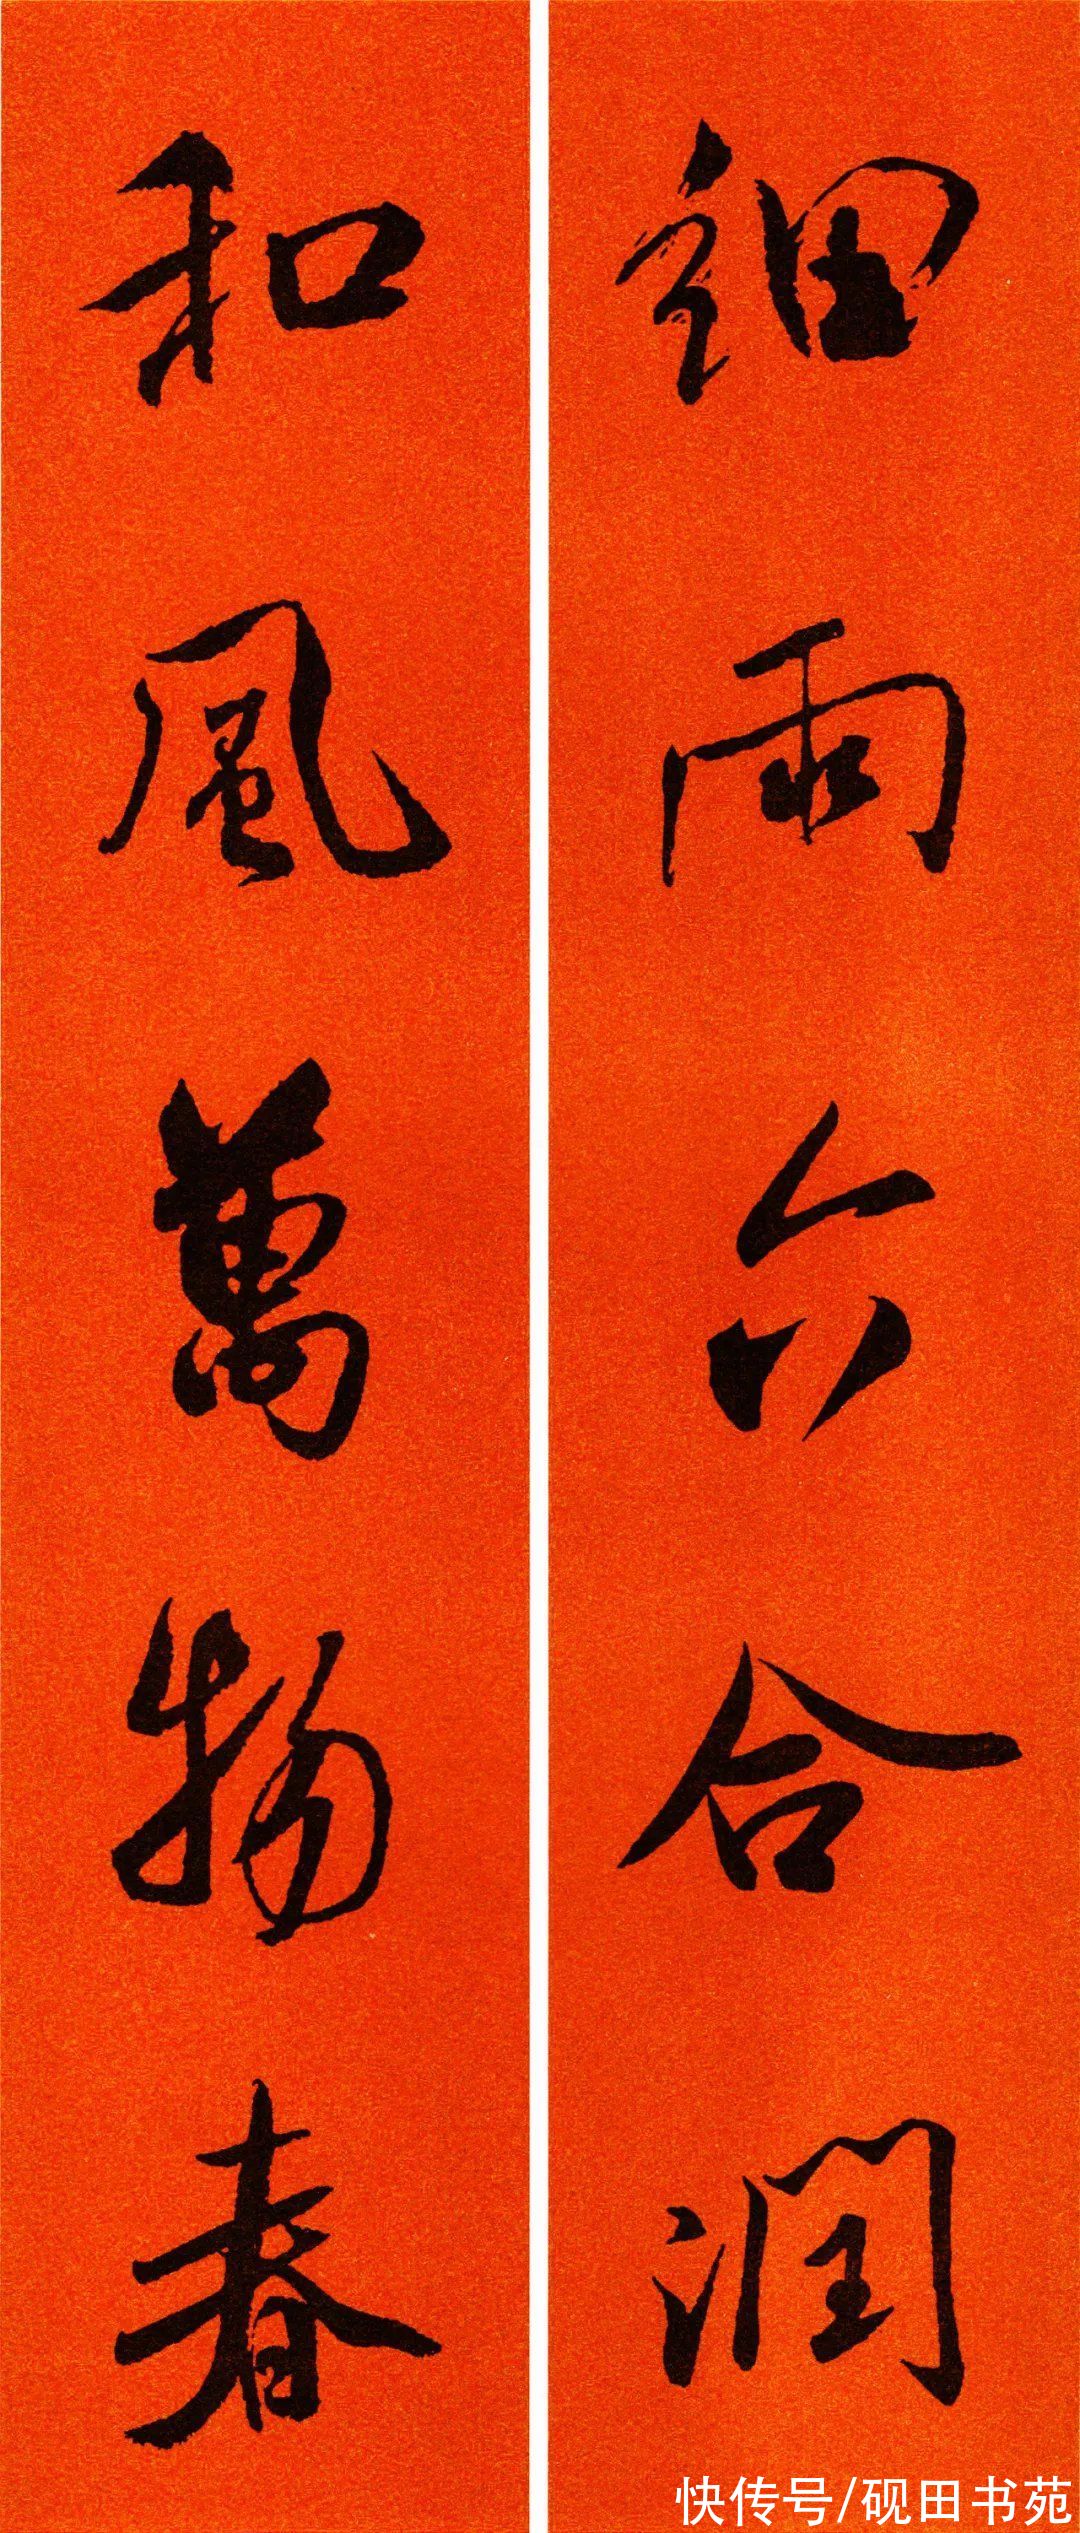 細雨六合潤
和風萬物春
快传号/砚田书苑